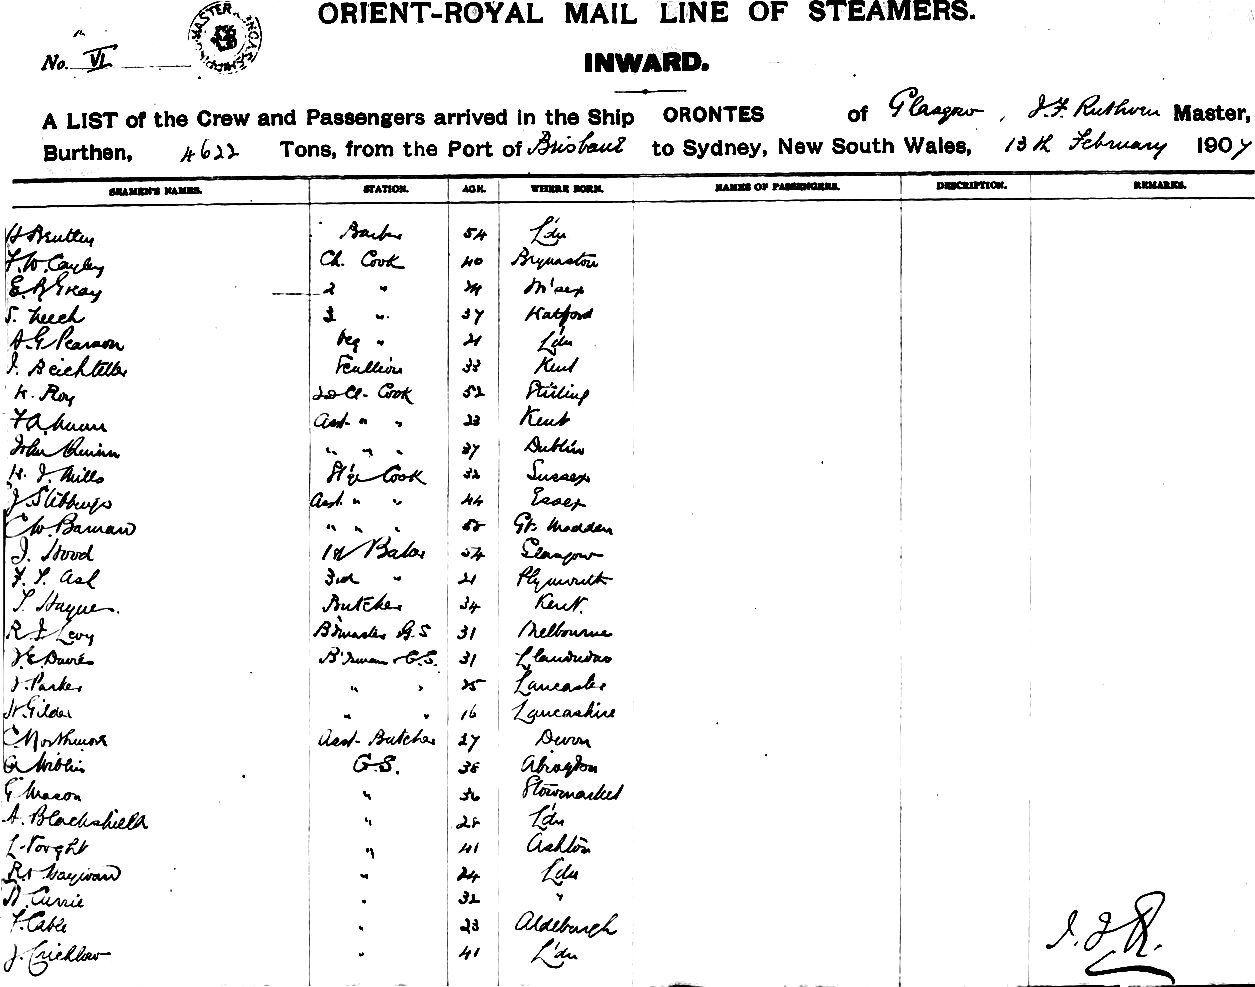 ORIENT-ROYAL MAIL LINE OF STEAMERS.
No. VI
INWARD.
A LIST of the Crew and Passengers arrived in the Ship ORONTES of Glasgow, J.F. Ruthven Master,
Burthen, 4622 Tons, from the Port of Brisbane to Sydney, New South Wales, 13th February 1907
SEAMEN'S NAMES. STATION. AGE. WHERE BORN. NAMES OF PASSENGERS. DESCRIPTION. REMARKS.
H Bentley 54 L'dn
F.W. Cayley Ch. Cook 40
E. A Gray 2 " M'sex
S. Leech 3 " 37 Hatford
A.G Pearson Veg " 21 L'dn
J. 33 Kent
K. Roy 2nd Cl. Cook 52 Stirling
F.A. Asst " " 23 Kent
John " " " 37 Dublin
H. J. Mills Cook 32 Sussex
J Stebbings Asst. " " 44 Essex
C.W. Barman " " "
J. Wood 1st Baker Glasgow
F. T. Ash 3rd " 21 Plymouth
T Hague. Butcher 34 Kent.
R J Levy G.S 31 Melbourne
Davies B'man G.S. 31 Llandudno
J. Parker " " 25 Lancaster
W Gilder " " 16 Lancashire
C Northmore Asst Butcher 27 Devon
A Miblin G.S. 38 Abingdon
G Mason " 36 Stowmarket
A. Blackshield " 28 L'dn
" 41 Ashton
R. Hayward " 24 L'dn
D. Currie " 32 "
F. Cable " 23 Aldeburgh
J. Crichlow " 41 L'dn
J.F.R.